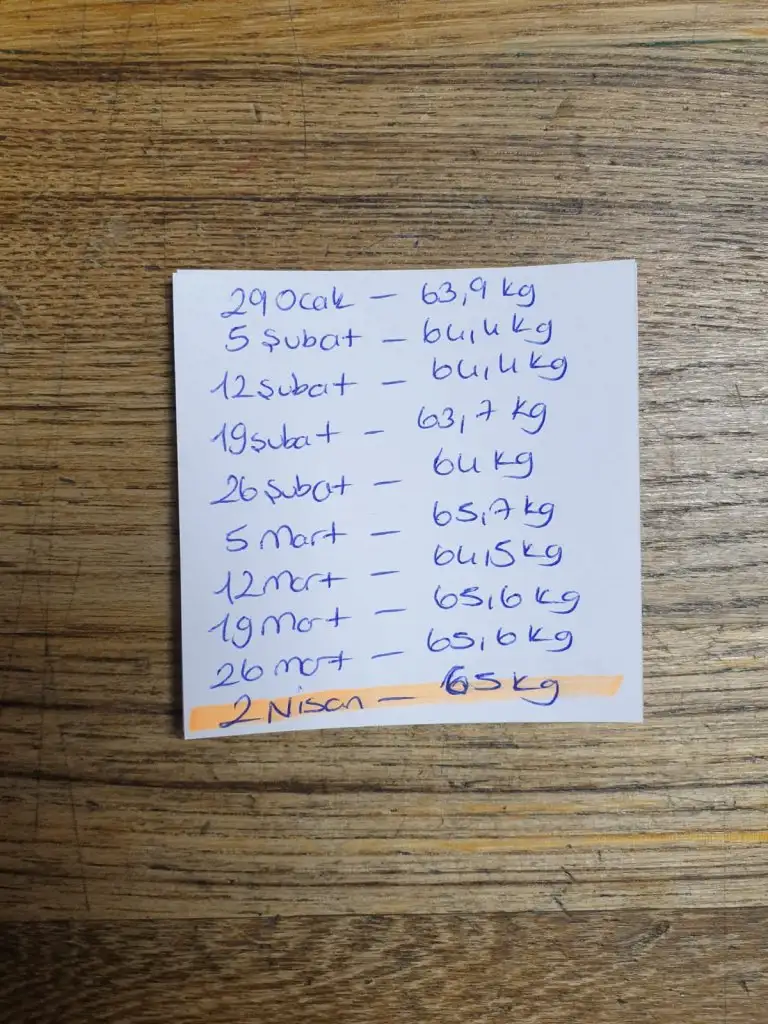 29 Ocak – 63,9 kg
5 Şubat – 64,4 kg
12 Şubat – 64,4 kg
19 Şubat – 63,7 kg
26 Şubat – 64 kg
5 Mart – 65,7 kg
12 Mart – 64,5 kg
19 Mart – 65,6 kg
26 Mart – 65,6 kg
2 Nisan – 65 kg